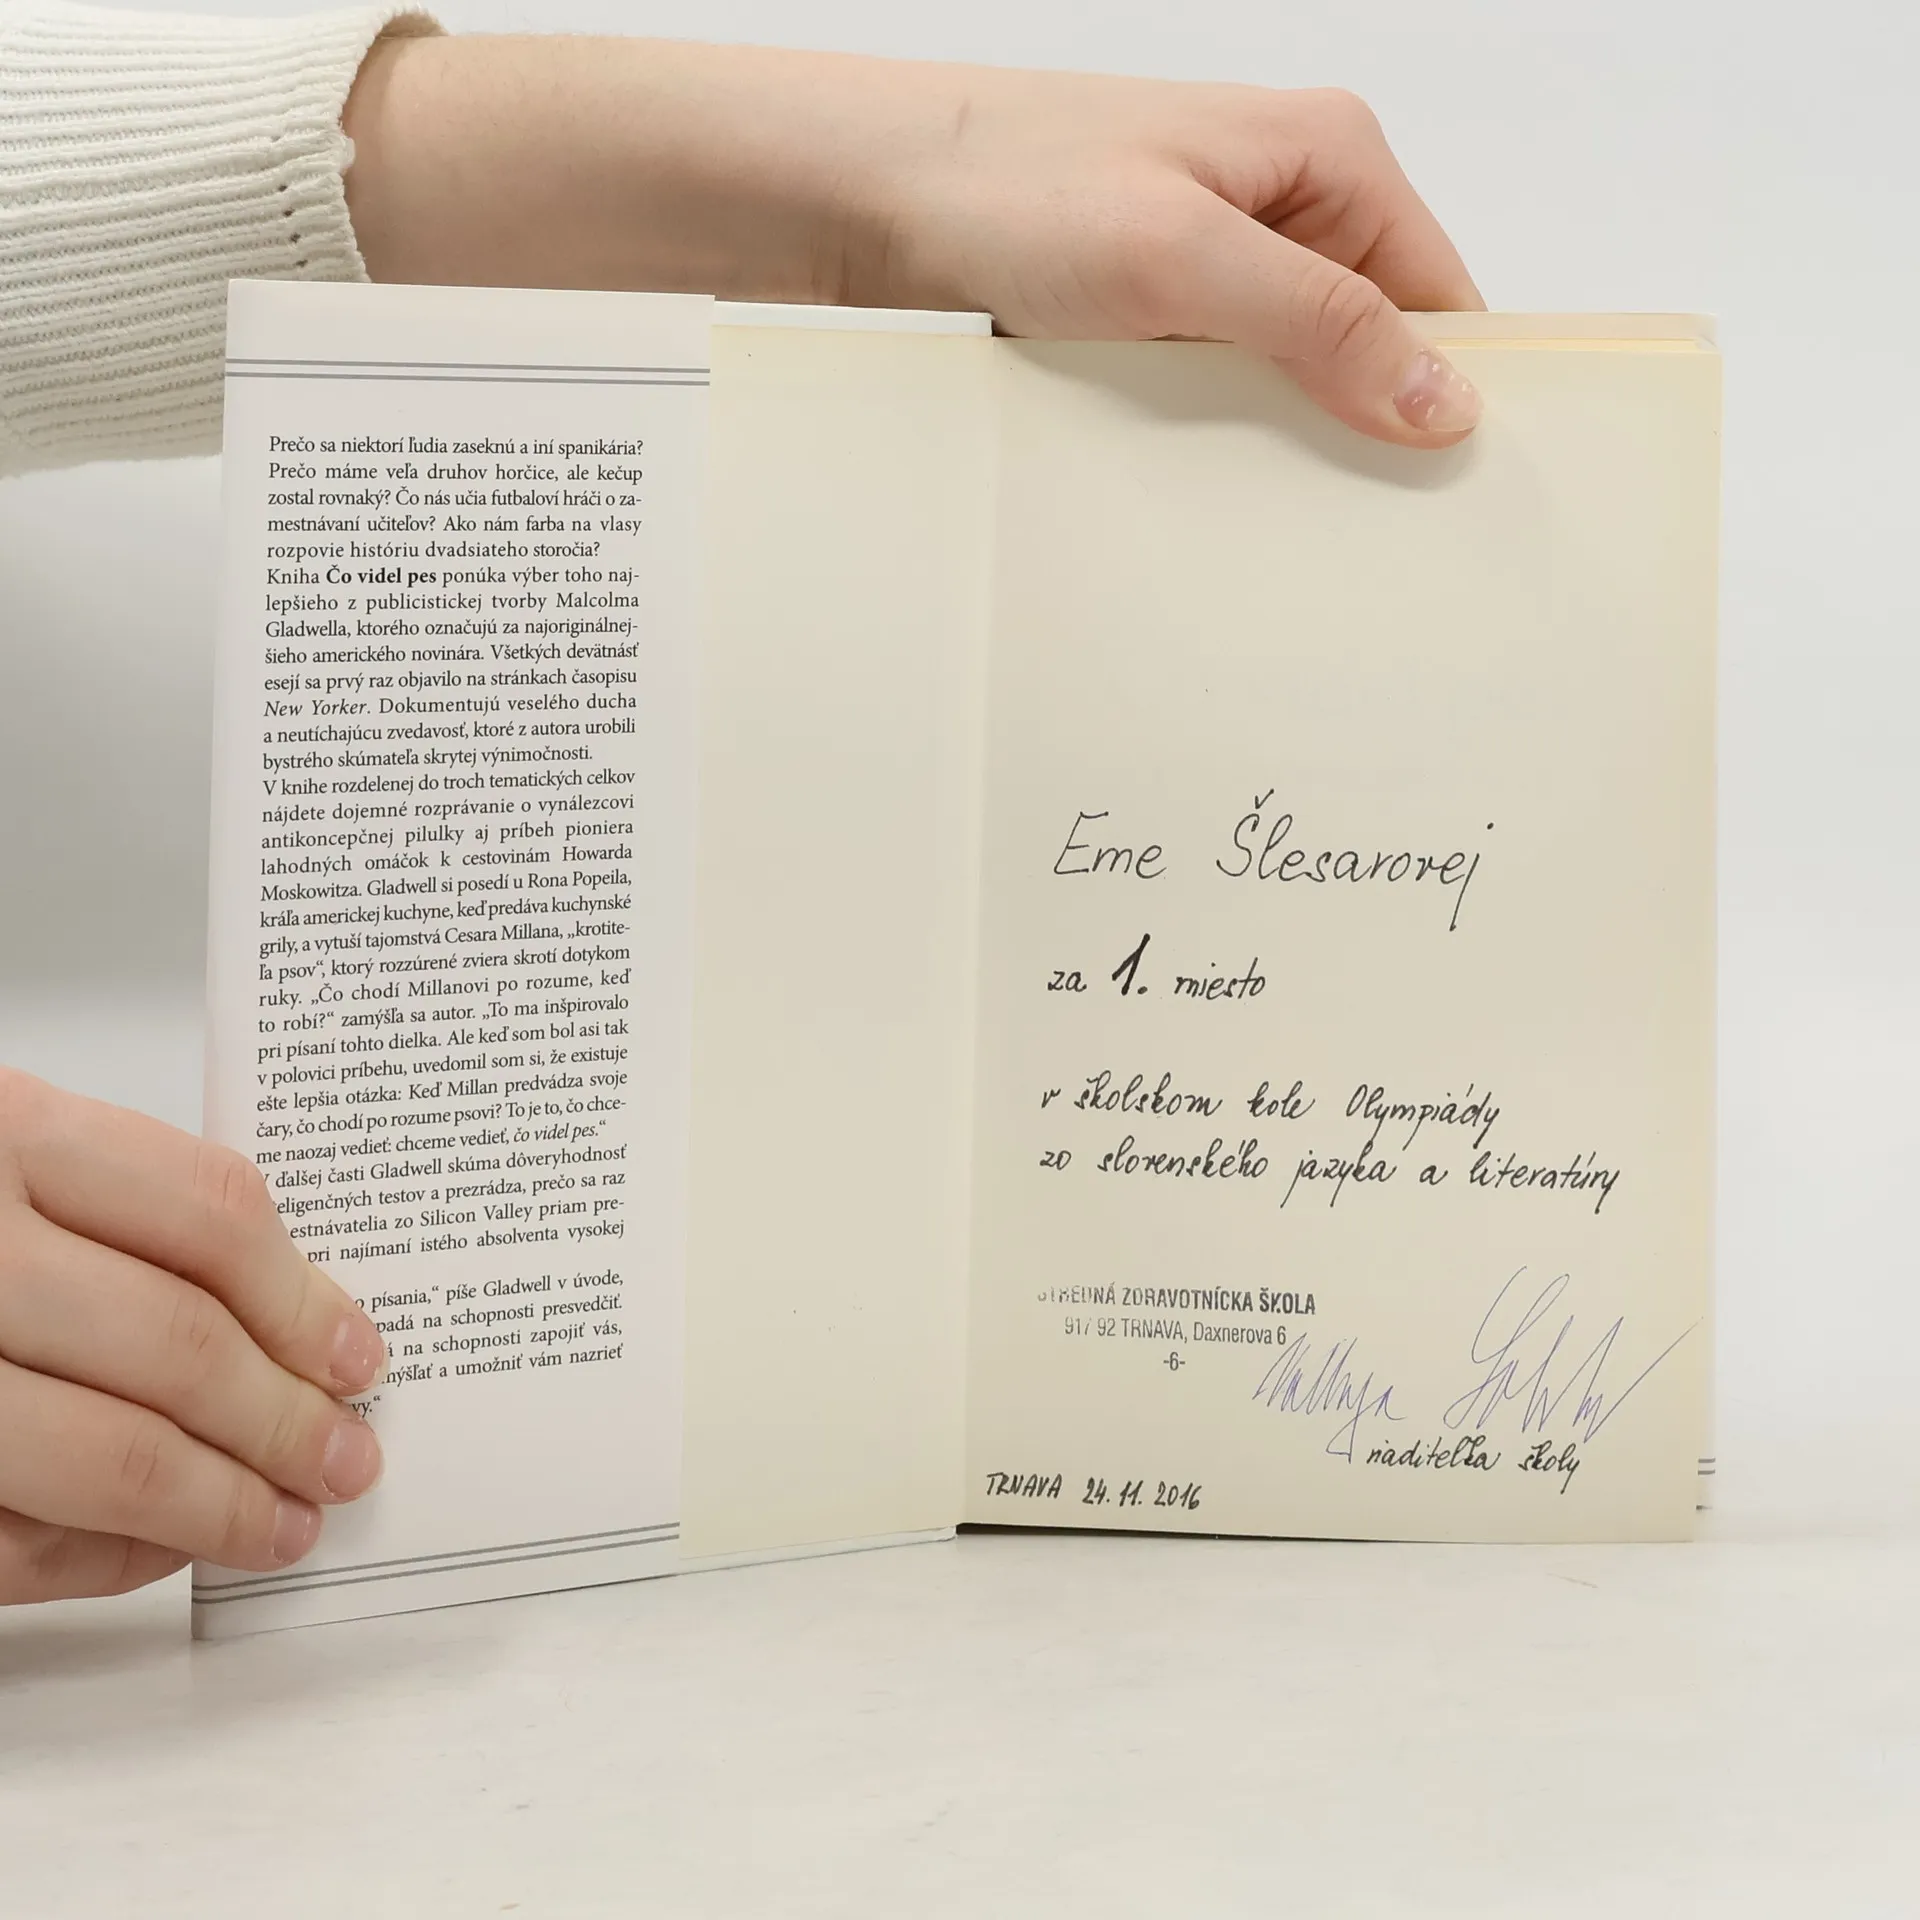 Prečo sa niektorí ľudia zaseknú a iní spanikária?
Prečo máme veľa druhov horčice, ale kečup
zostal rovnaký? Čo nás učia futbaloví hráči o za-
mestnávaní učiteľov? Ako nám farba na vlasy
rozpovie históriu dvadsiateho storočia?
Kniha Čo videl pes ponúka výber toho naj-
lepšieho z publicistickej tvorby Malcolma
Gladwella, ktorého označujú za najoriginálnej-
šieho amerického novinára. Všetkých devätnásť
esejí sa prvý raz objavilo na stránkach časopisu
New Yorker. Dokumentujú veselého ducha
a neutíchajúcu zvedavosť, ktoré z autora urobili
bystrého skúmateľa skrytej výnimočnosti.
V knihe rozdelenej do troch tematických celkov
nájdete dojemné rozprávanie o vynálezcovi
antikoncepčnej pilulky aj príbeh pioniera
lahodných omáčok k cestovinám Howarda
Moskowitza. Gladwell si posedí u Rona Popeila,
kráľa americkej kuchyne, keď predáva kuchynské
grily, a vytuší tajomstvá Cesara Millana, „krotite-
ľa psov“, ktorý rozzúrené zviera skrotí dotykom
ruky. „Čo chodí Millanovi po rozume, keď
to robí?“ zamýšľa sa autor. „To ma inšpirovalo
pri písaní tohto dielka. Ale keď som bol asi tak
v polovici príbehu, uvedomil som si, že existuje
ešte lepšia otázka: Keď Millan predvádza svoje
čary, čo chodí po rozume psovi? To je to, čo chce-
me naozaj vedieť: chceme vedieť, čo videl pes.“
V ďalšej časti Gladwell skúma dôveryhodnosť
eligenčných testov a prezrádza, prečo sa raz
estnávatelia zo Silicon Valley priam pre-
pri najímaní istého absolventa vysokej
o písania,“ píše Gladwell v úvode,
padá na schopnosti presvedčiť.
á na schopnosti zapojiť vás,
mýšľať a umožniť vám nazrieť
vy.“
Eme Šlesarovej
za 1. miesto
v školskom kole Olympiády
zo slovenského jazyka a literatúry
STREDNÁ ZDRAVOTNÍCKA ŠKOLA
917 92 TRNAVA, Daxnerova 6
-6-
riaditeľka školy
TRNAVA 24. 11. 2016